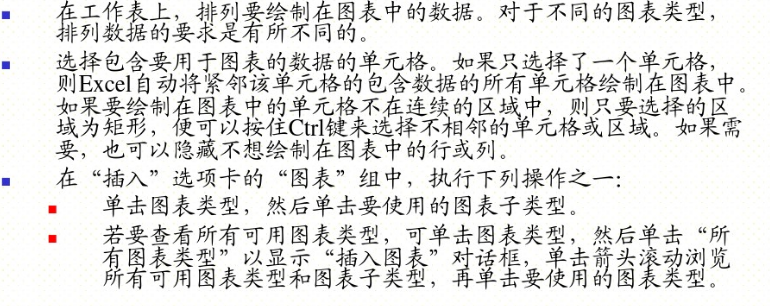 在工作表上，排列要绘制在图表中的数据。对于不同的图表类型，
排列数据的要求是有所不同的。
选择包含要用于图表的数据的单元格。如果只选择了一个单元格，
则Excel自动将紧邻该单元格的包含数据的所有单元格绘制在图表中。
如果要绘制在图表中的单元格不在连续的区域中，则只要选择的区
域为矩形，便可以按住Ctrl键来选择不相邻的单元格或区域。如果需
要，也可以隐藏不想绘制在图表中的行或列。
在“插入”选项卡的“图表”组中，执行下列操作之一：
单击图表类型，然后单击要使用的图表子类型。
若要查看所有可用图表类型，可单击图表类型，然后单击“所
有图表类型”以显示“插入图表”对话框，单击箭头滚动浏览
所有可用图表类型和图表子类型，再单击要使用的图表类型。